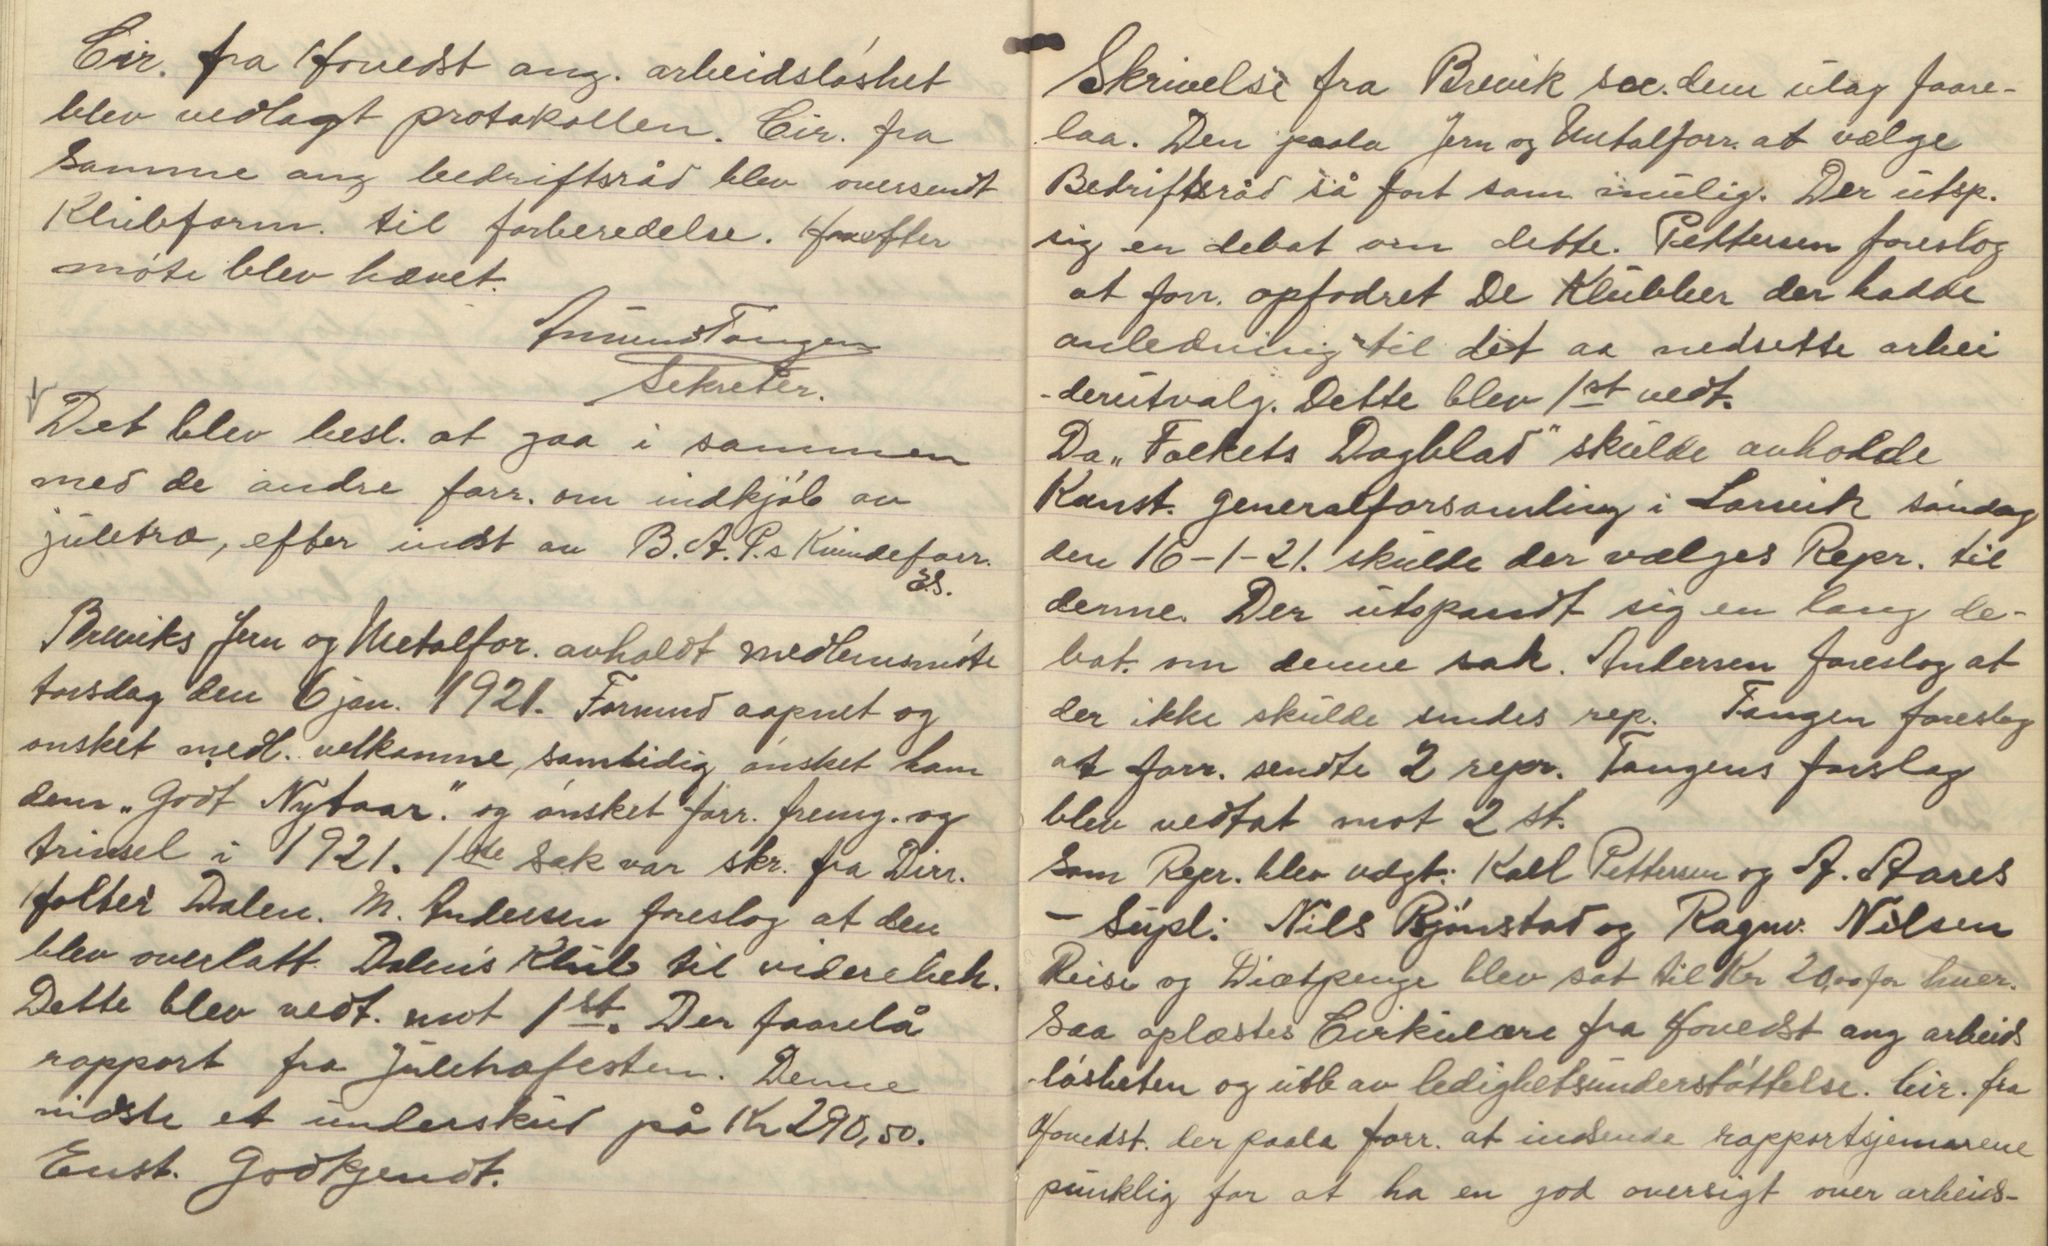 Cir. fra Hovedst ang. arbeidsløshet
blev vedlagt protokollen. Cir. fra
samme ang bedriftsråd blev oversendt
Klubform. til forberedelse. Hvorefter
møte blev hævet.
Amund Tangen
Sekretær.
Det blev besl. at gaa i sammen
med de andre forr. om indkjøb av
juletræ, efter indst av B.A.P.s Kvindeforr.
E.S.
Breviks Jern og Metalfor. avholdt medlemsmøte
torsdag den 6 jan. 1921. Formnd aapnet og
ønsket medl. velkomne, samtidig ønsket ham
dem „Godt Nytaar" og ønsket forr. fremg. og
trivsel i 1921. 1ste sak var skr. fra Dirr.
Holter Dalen. M. Andersen foreslog at den
blev overlatt Dalens Klub til viderebeh.
Dette blev vedt. mot 1 st. Der foorelå
rapport fra Juletræfesten. Denne
vidste et underskud på Kr 290,50.
Enst. Godkjendt.
Skrivelse fra Brevik soc.dem utag foore-
laa. Den paala Jern og Metalforr. at vælge
Bedriftsråd så fort som mulig. Der utsp.
sig en debat om dette. Pettersen foreslog
at forr. opfodret De Klubber der hadde
anledning til det aa nedsette arbei
-derutvalg. Dette blev 1st vedt.
Da „Folkets Dagblad" skulde avholde
Konst. generalforsamling i Larvik søndag
den 16-1-21. skulde der vælges Repr. til
denne. Der utspandt sig en lang de-
bat. om denne sak. Andersen foreslog at
der ikke skulde sendes rep. Tangen foreslog
at forr. sendte 2 repr. Tangens forslag
blev vedtat mot 2 st.
Som Repr. blev valgt: Karl Pettersen og A. Aares
- Supl: Nils Bjønstad og Ragnv. Nilsen
Reise og Diætpenge blev sat til Kr 20,00 for hver.
Saa oplæstes Cirkulære fra Hovedst ang arbeids
-løsheten og utb av ledighetsunderstøttelse. Cir. fra
Hovedst. der paala forr. at indsende rapportsjemaene
punklig for at ha en god oversigt over arbeids-